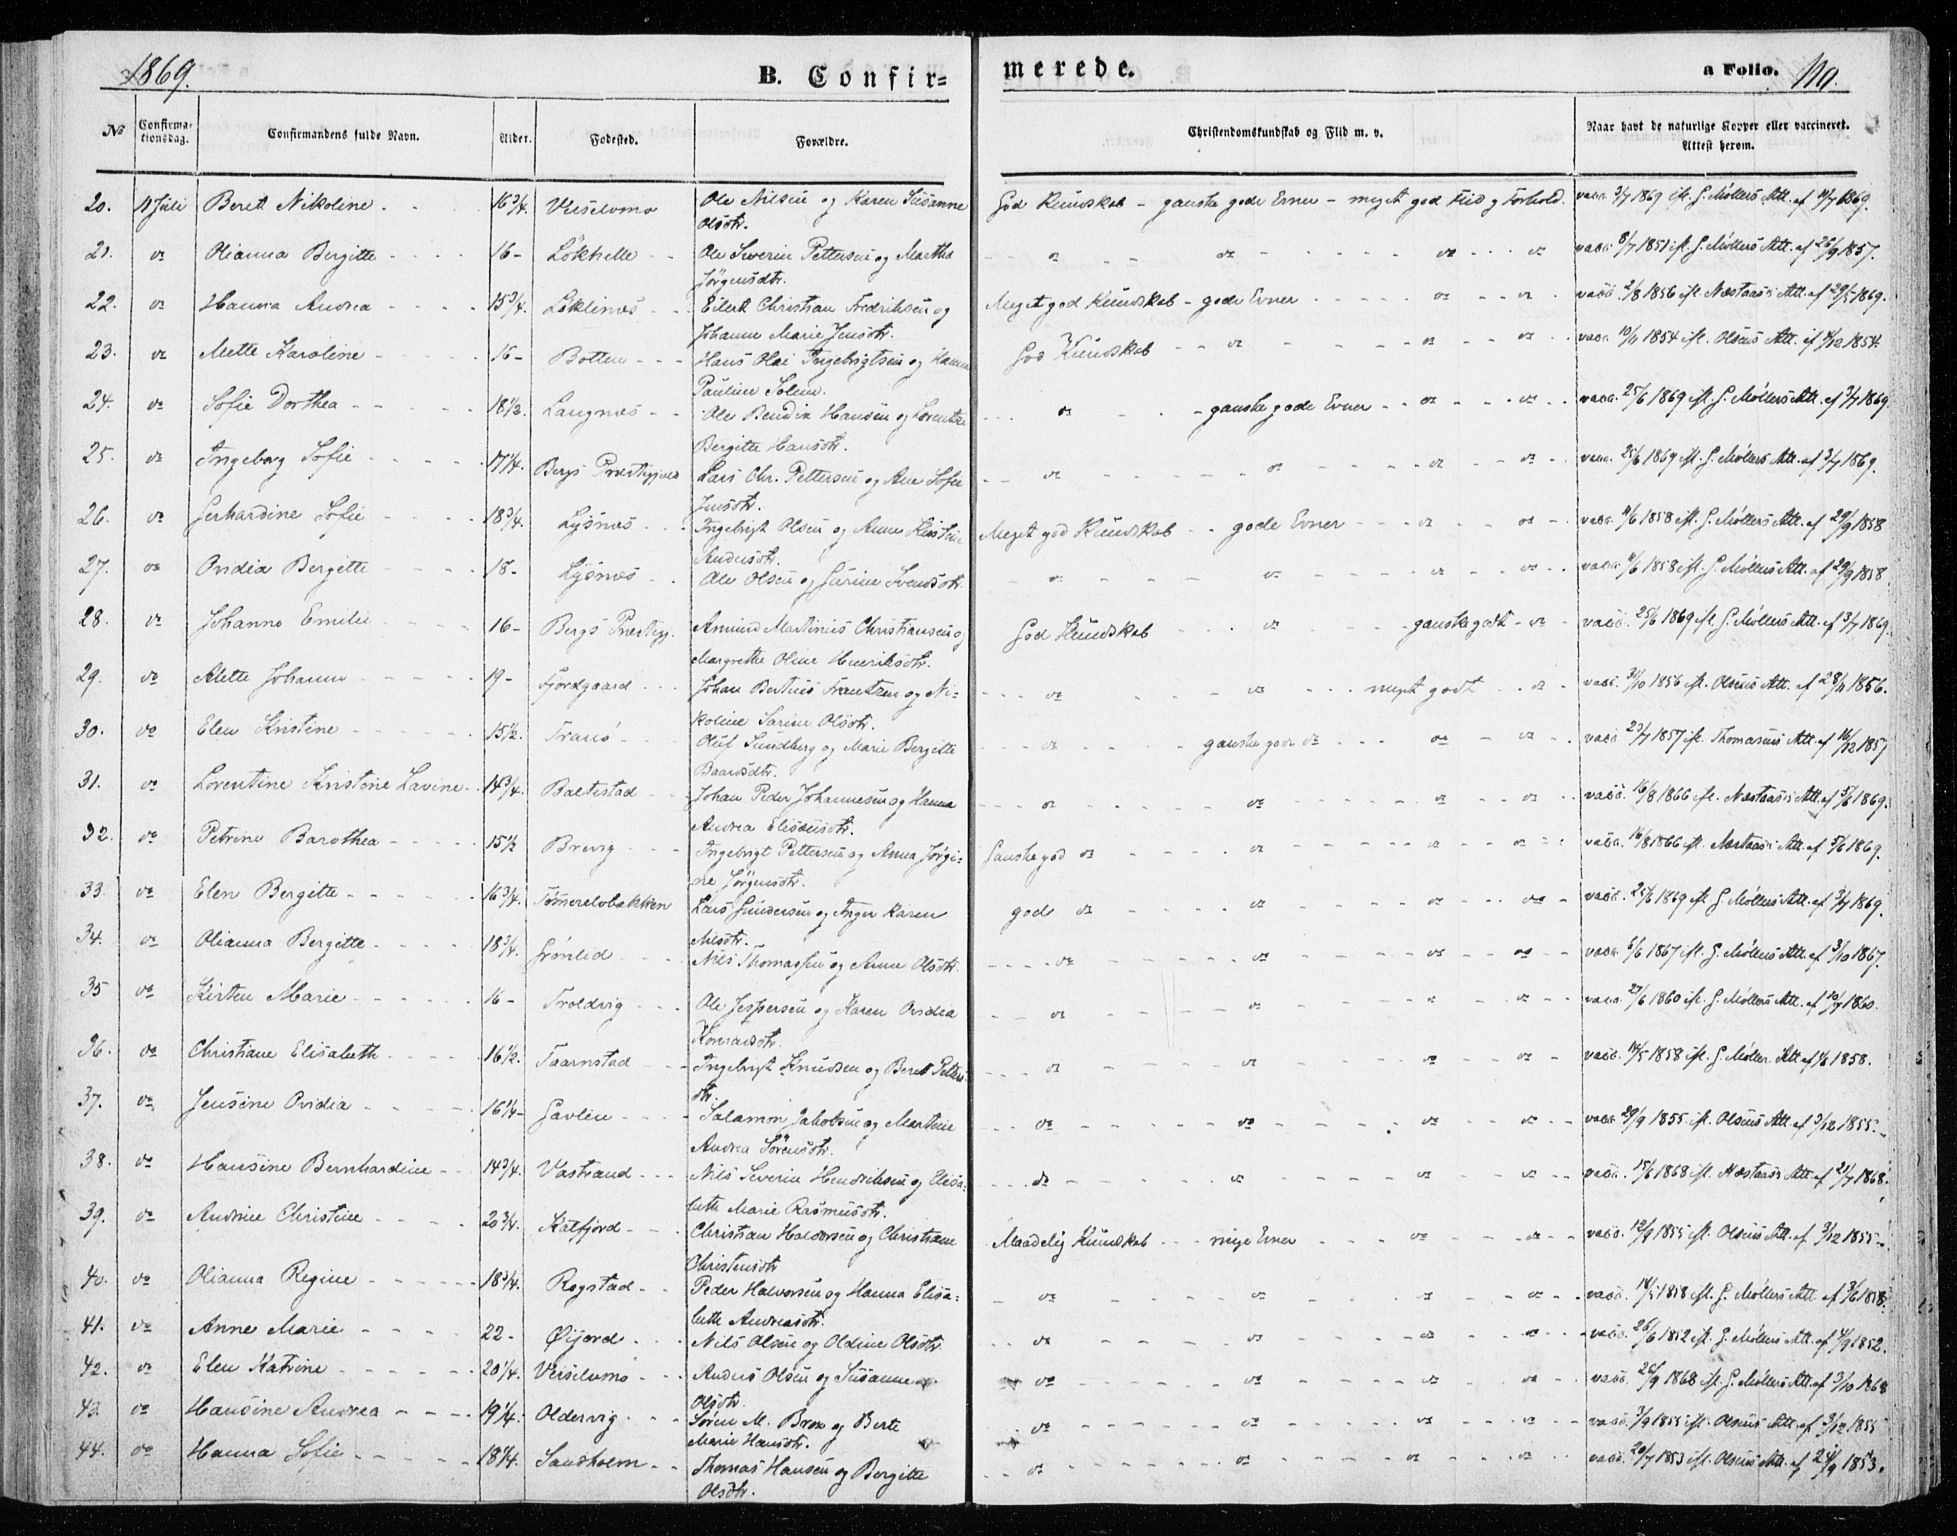 1869.
B. Confir=
merede.
a Folio. 110.
No Confirmationsdag. Confirmandens fulde Navn. Alder. Fødested. Forældre. Christendomskundskab og Flid m. v. Naar havt de naturlige Kopper eller vaccineret. Attest herom.
20. 11 Juli Beret Nikoline 16 3/4. Veiselvmo Ole Nilsen og Karen Susanne Olsdtr. God Kundskab - ganske gode Evner - meget god Flid og Forhold. vacc. 3/7 1869 ifl. G. Møllers Att. af 10/7 1869.
21. do Olianna Bergitte 16 - Løkhelle Ole Severin Pettersen og Martha Jørgensdtr. do do do do vacc. 8/7 1851 ifl. G. Møllers Att. af 26/9 1857.
22. do Hanna Andrea 15 3/4. Løklinæs Eilert Christian Fredriksen og Johanne Marie Jensdtr. Meget god Kundskab - gode Evner do do vacc. 2/8 1856 ifl. Næstaas's Att. af 29/5 1869.
23. do Mette Karoline 16 - Botten Hans Olai Ingebrigtsen og Hanna Pauline Solem. God Kundskab do do do vacc. 10/11 1854 ifl. Olsens Att. af 4/12 1854.
24. do Sofie Dorthea 18 1/2. Langnæs Ole Bendix Hansen og Lorentze Bergitte Hansdtr. do ganske gode Evner do do vacc. 25/6 1869 ifl. G. Møllers Att. af 3/7 1869.
25. do Ingeborg Sofie 17 1/4. Bergs Præstegjeld Lars Chr. Pettersen og Ane Sofie Jensdtr. do do do do vacc. 25/6 1869 ifl. G. Møllers Att. af 3/7 1869.
26. do Gerhardine Sofie 18 3/4. Lysnæs Ingebrigt Olsen og Anne Kirstine Andersdtr. Meget god Kundskab gode Evner do do vacc. 11/6 1858 ifl. G. Møllers Att. af 29/9 1858
27. do Ovidia Bergitte 18 - Lysnæs Ole Olsen og Gurine Svendsdtr. do do do do vacc. 11/6 1858 ifl. G. Møllers Att. af 29/9 1858
28. do Johanne Emilie 16 - Bergs Præstegj. Amund Martinius Christiansen og Margrethe Oline Henriksdtr. God Kundskab do ganske godt do vacc. 25/6 1869 ifl. G. Møllers Att. af 3/7 1869.
29. do Alette Johanne 19 - Fjordgaard Johan Bertnus Frantzen og Nikoline Sarine Olsdtr. do do meget godt do vacc. 31/10 1856 ifl. Olsens Att. af 28/11 1856.
30. do Elen Kristine 15 1/2. Tranø Oluf Sundberg og Marie Bergitte Baardsdtr. do ganske gode do do do vacc. 23/7 1857 ifl. Thomasens Att. af 16/12 1857
31. do Lorentine Kristine Lavine 14 3/4. Baltestad Johan Peder Johannesen og Hanna Andrea Eliseusdtr. do do do do vacc. 16/8 1866 ifl. Næstaas's Att. af 5/6 1869.
32. do Petrine Barothea 15 1/2 Brevig Ingebrigt Pettersen og Anna Jørgine Jørgensdtr. Ganske god do do do do vacc. 16/8 1866 ifl. Næstaas's Att. af 5/6 1869.
33. do Elen Bergitte 16 3/4. Tømerelvbakken Lars Gundersen og Inger Karen Nilsdtr. god do do do do vacc. 25/6 1869 ifl. G. Møllers Att. af 3/7 1869.
34. do Olianna Bergitte 18 3/4. Grønlid Nils Thomassen og Anne Olsdtr. do do do do vacc. 6/6 1867 ifl. G. Møllers Att. af 3/10 1867.
35 do Kirsten Marie 16 - Troldvig Ole Jespersen og Karen Ovidia Konradsdtr. do do do do vacc. 27/6 1860 ifl. G. Møllers Att. af 10/7 1860.
36. do Christiane Elisabeth 16 1/2. Taarnstad Ingebrigt Knudsen og Beret Pettersdtr. do do do do vacc. 14/5 1858 ifl. G. Møllers Att. af 1/6 1858.
37. do Jensine Ovidia 16 1/4 - Gavlen Salamon Jakobsen og Martine Andrea Sørensdtr. do do do do vacc. 29/9 1855 ifl. Olsens Att. af 3/12 1855.
38. do Hansine Bernhardine 14 3/4. Vastrand Nils Severin Hendriksen og Elisabeth Marie Rasmusdtr. do do do do vacc. 15/6 1868 ifl. Næstaas's Att. af 21/7 1868.
39. do Andrine Christine 20 3/4. Katfjord Christian Halvorsen og Christiane Christensdtr Maadelig Kundskab - ringe Evner do do vacc. 12/9 1855 ifl. Olsens Att. af 3/12 1855.
40. do Olianna Regine 18 3/4. Rogstad Peder Halvorsen og Hanna Elisabeth Andreasdtr. do do do do vacc. 14/5 1858 ifl. G. Møllers Att. af 3/6 1858.
41. do Anne Marie 22 - Øijord Nils Olsen og Oldine Olsdtr. do do do do vacc. 26/6 1852 ifl. G. Møllers Att. af 4/9 1852.
42. do Elen Katrine 20 1/4. Veiselvmo Anders Olsen og Susanne Olsdtr. do do do do vacc. 26/9 1868 ifl. G. Møllers Att. af 3/10 1868
43. do Hansine Andrea 19 1/4. Oldervig Søren M. Brox og Berte Marie Hansdtr. do do do do vacc. 3/9 1855 ifl. Olsens Att. af 3/12 1855
44. do Hanna Sofie 18 1/4. Sandholm Thomas Hansen og Bergitte Olsdtr. do do do do vacc. 20/7 1853 ifl. Olsens Att. af 24/9 1853.